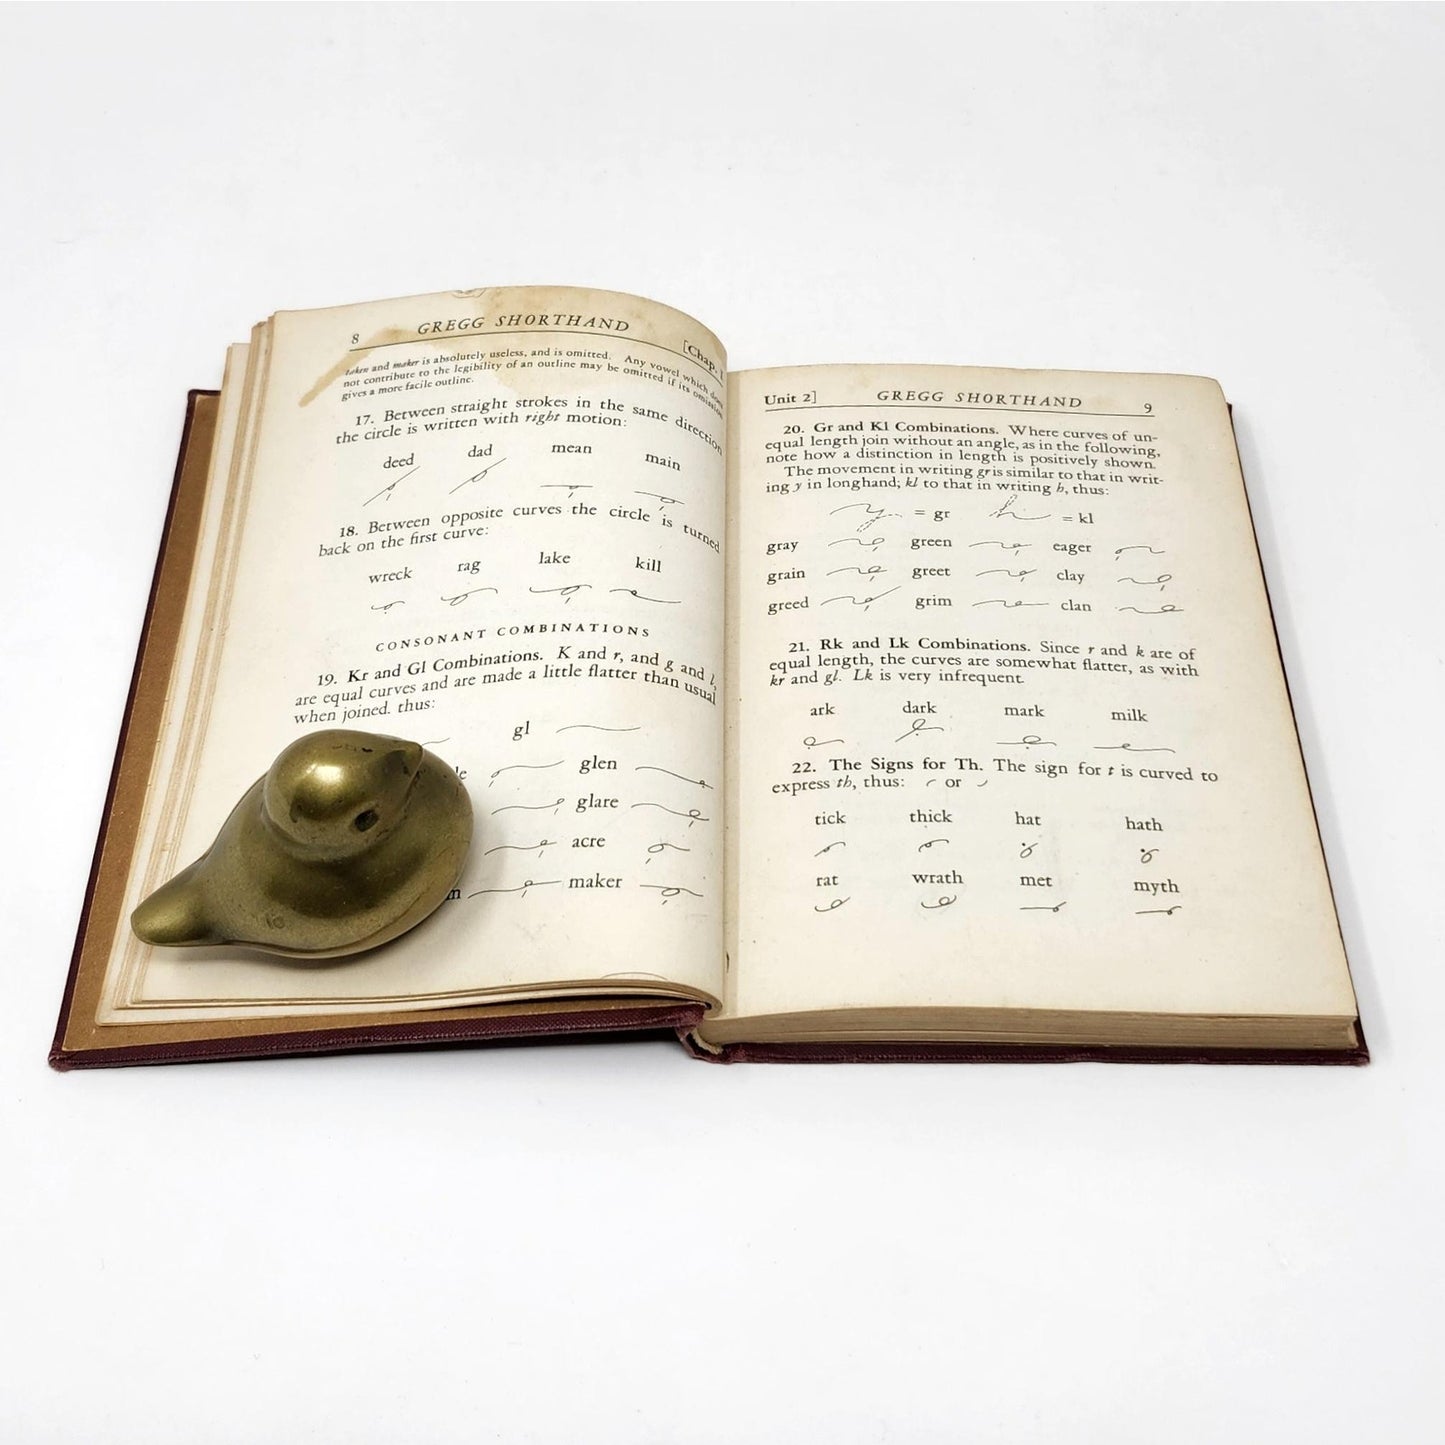 8 GREGG SHORTHAND [Chap. I
taken and maker is absolutely useless, and is omitted. Any vowel which does
not contribute to the legibility of an outline may be omitted if its omission
gives a more facile outline.
17. Between straight strokes in the same direction
the circle is written with right motion:
deed dad mean main
18. Between opposite curves the circle is turned
back on the first curve:
wreck rag lake kill
CONSONANT COMBINATIONS
19. Kr and Gl Combinations. K and r, and g and l,
are equal curves and are made a little flatter than usual
when joined. thus:
gl
glen
glare
acre
maker
Unit 2] GREGG SHORTHAND 9
20. Gr and Kl Combinations. Where curves of un-
equal length join without an angle, as in the following,
note how a distinction in length is positively shown.
The movement in writing gr is similar to that in writ-
ing y in longhand; kl to that in writing h, thus:
= gr = kl
gray green eager
grain greet clay
greed grim clan
21. Rk and Lk Combinations. Since r and k are of
equal length, the curves are somewhat flatter, as with
kr and gl. Lk is very infrequent.
ark dark mark milk
22. The Signs for Th. The sign for t is curved to
express th, thus: or
tick thick hat hath
rat wrath met myth